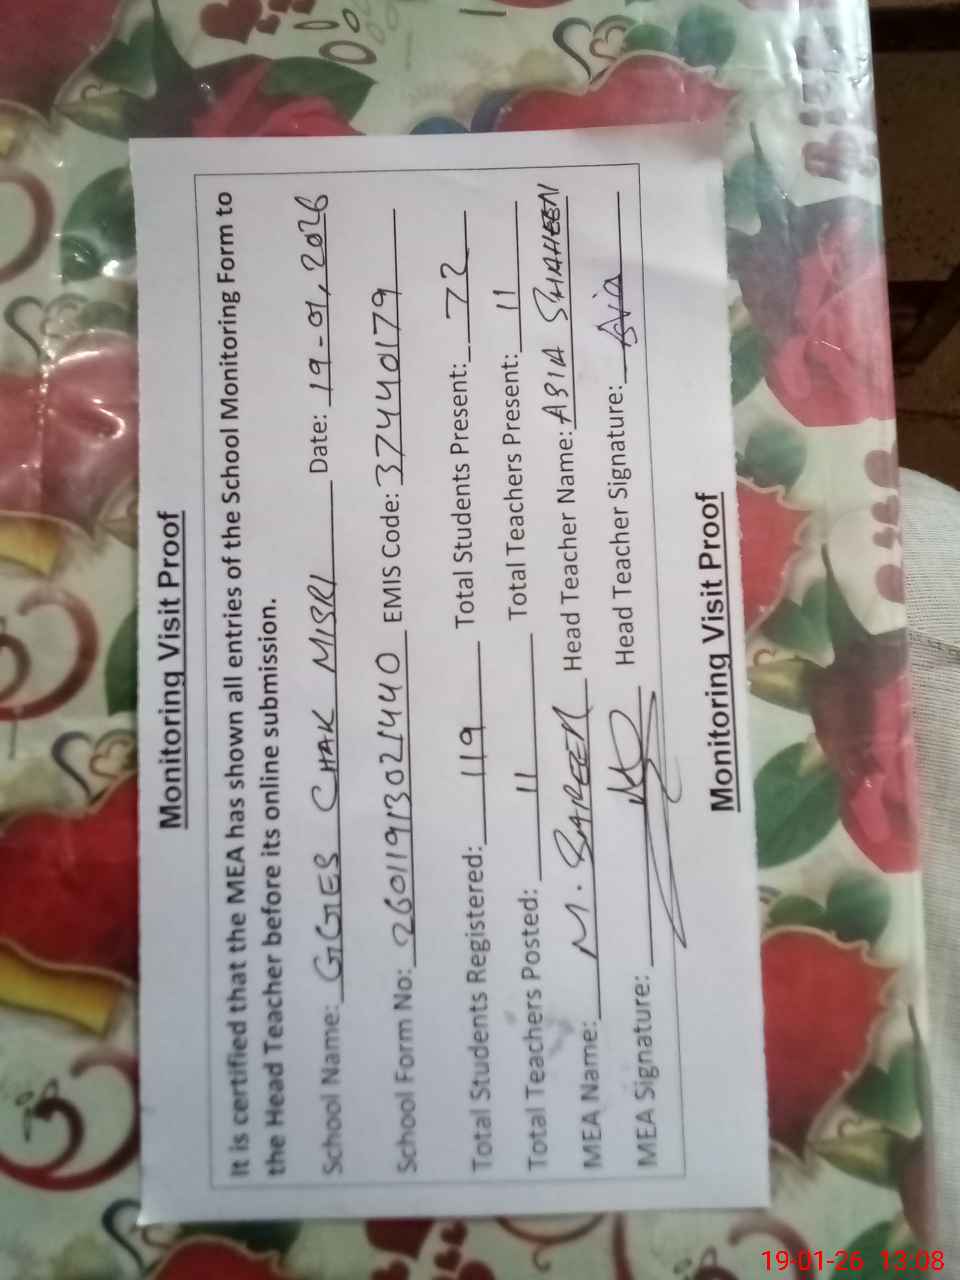 Monitoring Visit Proof
It is certified that the MEA has shown all entries of the School Monitoring Form to
the Head Teacher before its online submission.
School Name: GGES CHAK MISRI Date: 19-01, 2026
School Form No: 26011913021440 EMIS Code: 37440179
Total Students Registered: 119 Total Students Present: 72
Total Teachers Posted: 11 Total Teachers Present: 11
MEA Name: M. SAREEN Head Teacher Name: ASIA SHAHEEN
MEA Signature: Head Teacher Signature: Asia
Monitoring Visit Proof
19-01-26 13:08